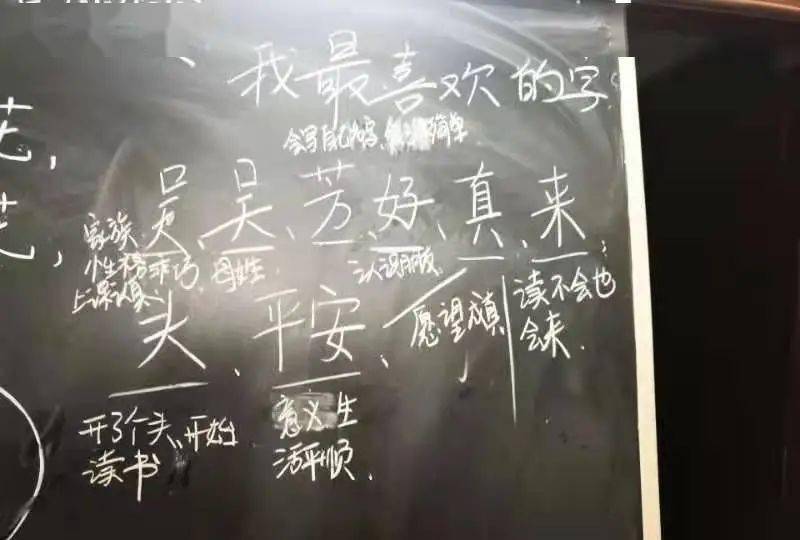 我最喜欢的字
会写自己 简单
吴、吴、芳、好、真、来,
家族 性格乖巧 母姓 认识朋友
上课认真
头、平安、愿望成真 读不会也会来.
开了个头、开始读书
意义生活平顺.